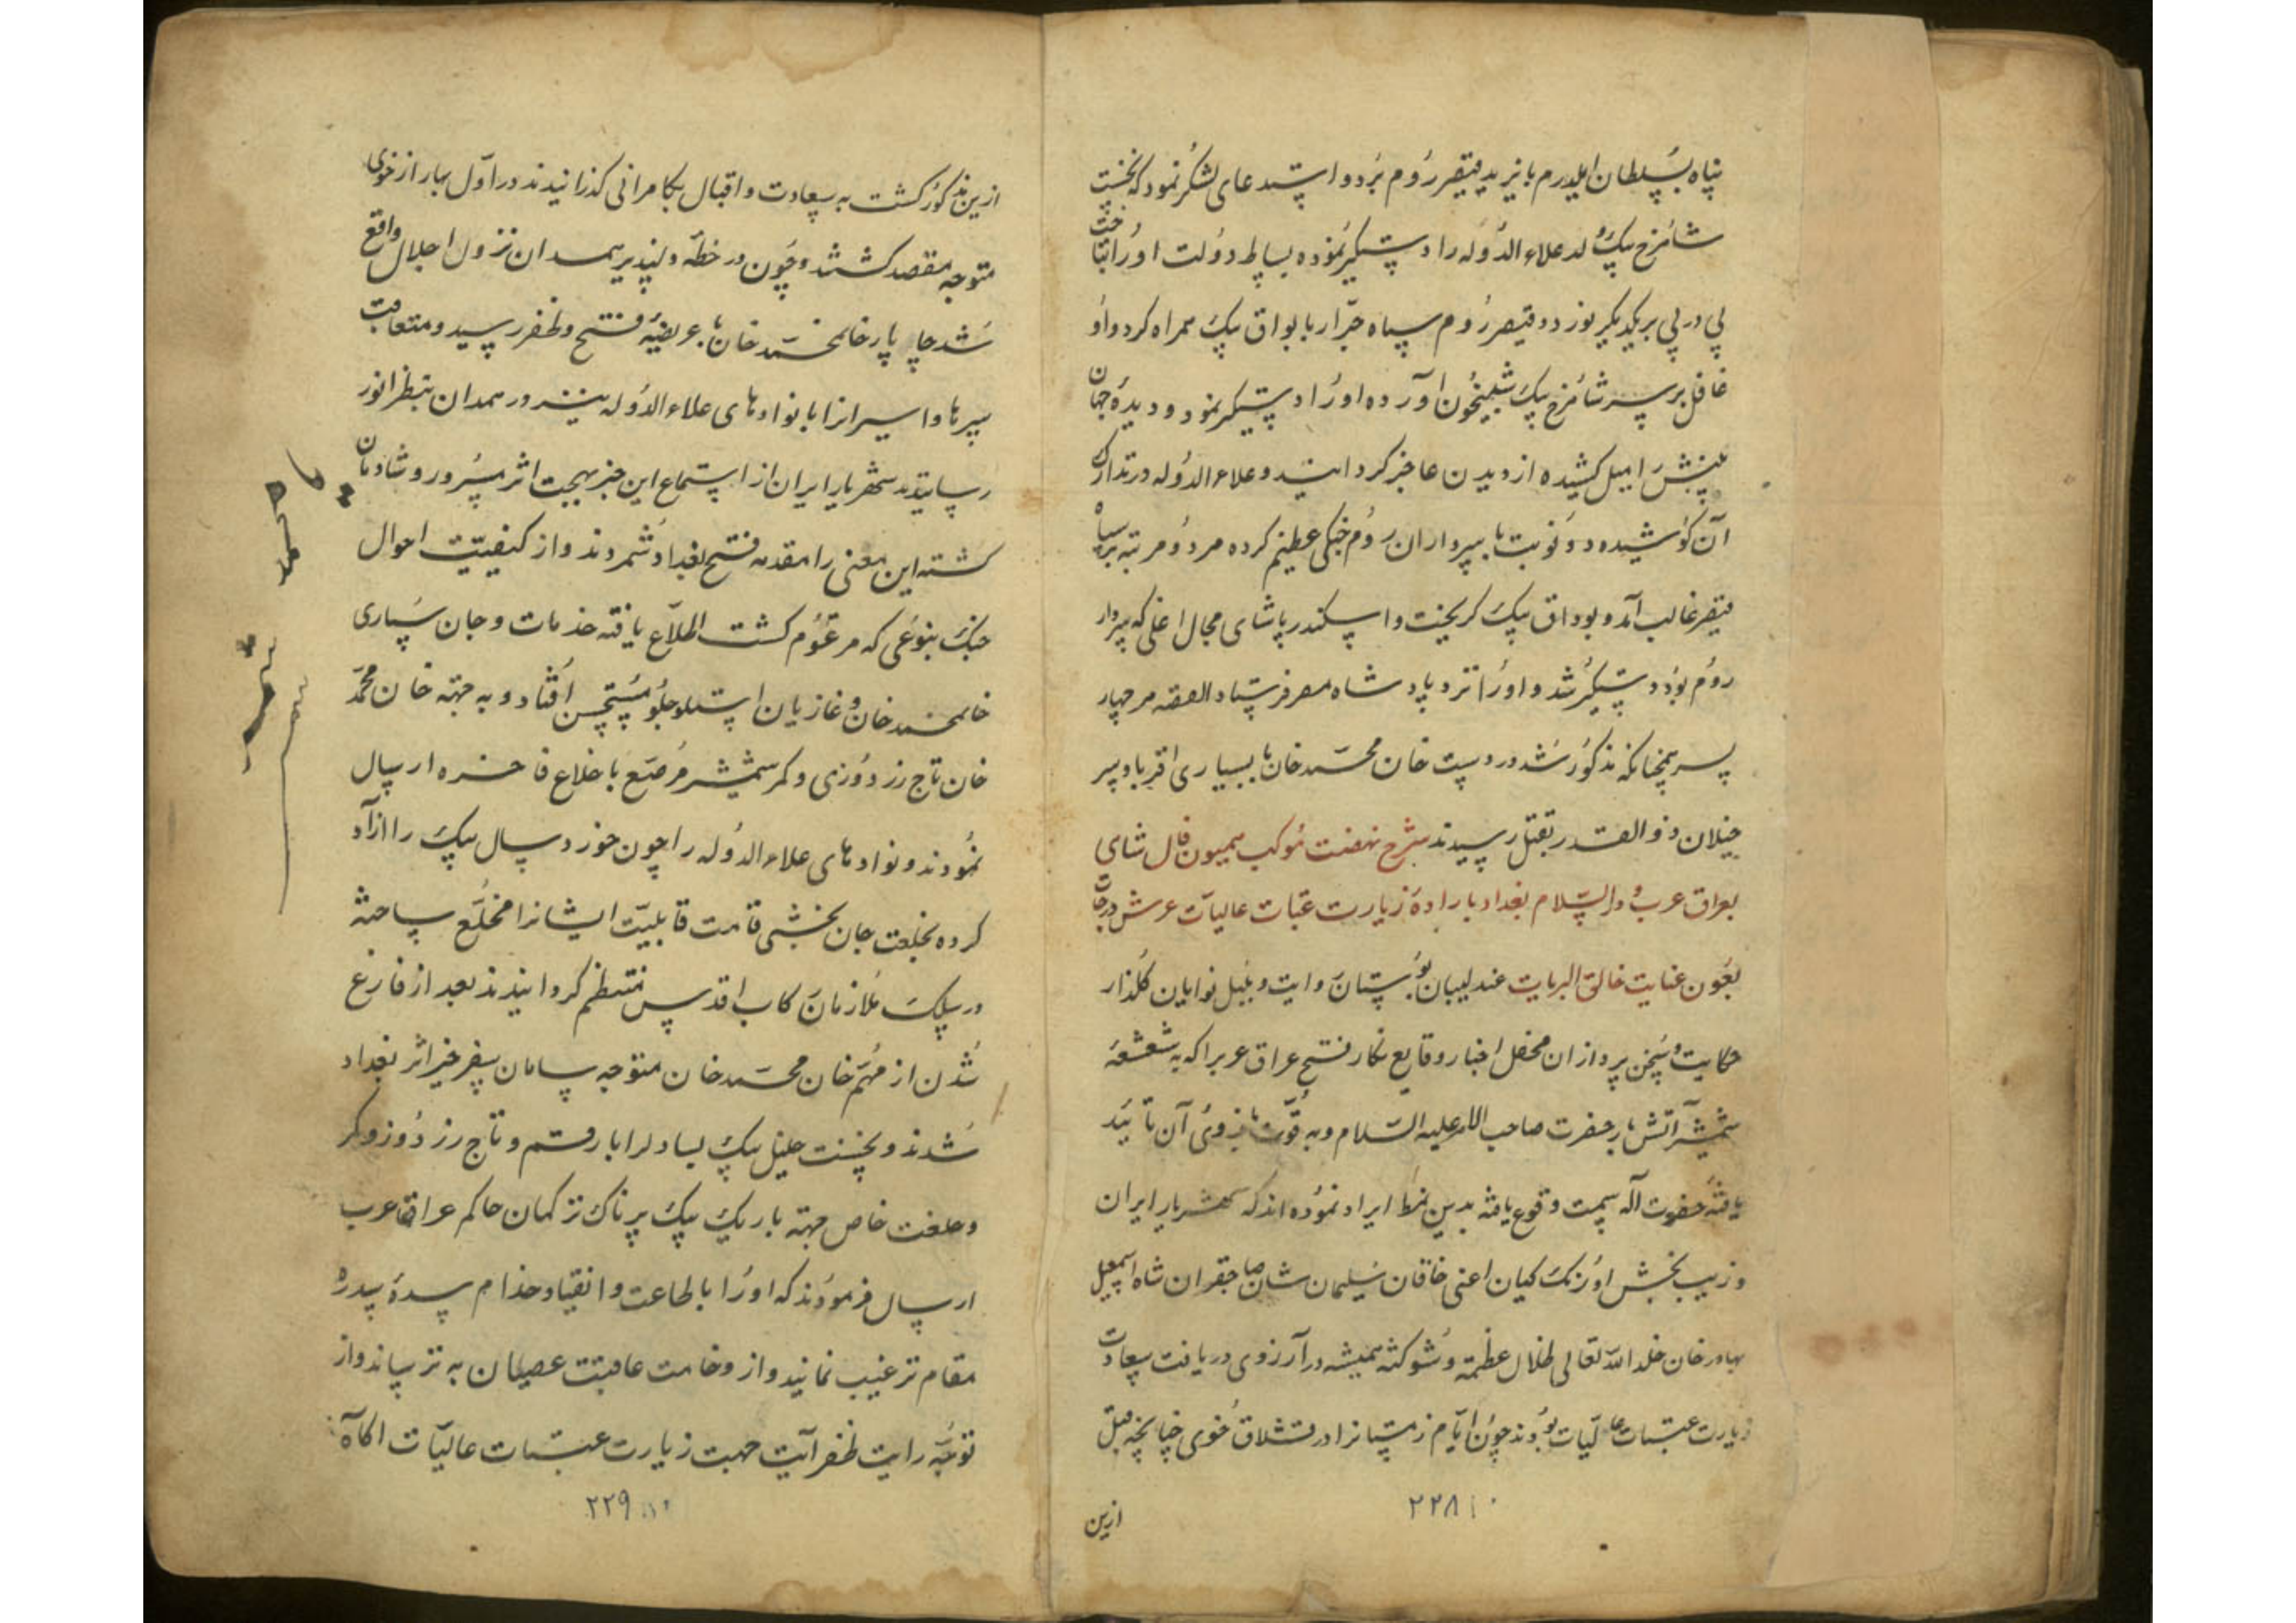 پناه بسلطان ایلدرم بایزید قیصر روم برد و استدعای لشکر نمود که نخست
شاهرخ بیک ولد علاء الدوله را دستگیر نموده بساط دولت او را بتاخت
پی در پی بر یکدیگر نوردد و قیصر روم سپاه جرار با بوداق بیک همراه کرد و او
غافل بر سر شاهرخ بیک شبیخون آورده او را دستگیر نمود و دیدهٔ جهان
بینش را میل کشیده از دیدن عاجز گردانید و علاء الدوله در تدارک
آن کوشیده دو نوبت با سرداران روم جنگی عظیم کرده هر دو مرتبه بر سپاه
قیصر غالب آمد و بوداق بیک گریخت و اسکندر پاشای مجال اغلی که سردار
روم بود دستگیر شد و او را نزد پادشاه مصر فرستاد القصه هر چهار
پسر همچنانکه مذکور شد در دست خان محمد خان با بسیاری اقربا و سر
خیلان ذوالقدر بقتل رسیدند شرح نهضت موکب همیون فال شاهی
بعراق عرب و دار السلام بغداد بارادهٔ زیارت عتبات عالیات عرش درجات
بعون عنایت خالق البریات عندلیبان بوستان روایت و بلبل نوایان گلذار
حکایت و سخن پردازان محفل اخبار وقایع نگار فتح عراق عرب را که به شعشعهٔ
شمشیر آتش بار حضرت صاحب الامر علیه السلام و به قوت بازوی آن تائید
یافتهٔ حضرت آله سمت وقوع یافته بدین نمط ایراد نموده اند که شهریار ایران
و زیب بخش اورنک کیان اعنی خاقان سلیمان شان صاحبقران شاه اسمعیل
بهادر خان خلد الله تعالی ظلال عظمته و شوکته همیشه در آرزوی دریافت سعادت
زیارت عتبات عالیات بودند چون ایام زمستانرا در قشلاق خوی چنانچه قبل
۲۲۸
ازین
ازین مذکور گشت به سعادت و اقبال بکامرانی گذرانیدند در اول بهار از خوی
متوجه مقصد گشتند و چون در خطهٔ دلپذیر همدان نزول اجلال واقع
شد چاپار خانمحمد خان با عریضهٔ فتح و ظفر رسید و متعاقب
سرها و اسیرانرا با نوادهای علاء الدوله نیز در همدان بنظر انور
رسانیدند شهریار ایران از استماع این خبر بهجت اثر مسرور و شادمان
گشته این معنی را مقدمه فتح بغداد شمردند و از کیفیت احوال
جنگ بنوعی که مرقوم گشت اطلاع یافته خدمات و جان سپاری
خانمحمد خان و غازیان استاجلو مستحسن افتاد و به جهته خان محمد
خان تاج زر دوزی و کمر شمشیر مرصع با خلاع فاخره ارسال
نمودند و نوادهای علاء الدوله را چون خورد سال بیک را ازاد
کرده بخلعت جان بخشی قامت قابلیت ایشانرا مخلع ساخته
در سلک ملازمان رکاب اقدس منتظم گردانیدند بعد از فارغ
شدن از مهم خان محمد خان متوجه سامان سفر خیر اثر بغداد
شدند و نخست خلیل بیک یساول را با رقم و تاج زر دوز و کمر
و خلعت خاص جهته باریک بیک پرناک ترکمان حاکم عراق عرب
ارسال فرمودند که او را باطاعت و انقیاد خدام سدهٔ سدره
مقام ترغیب نمایند و از وخامت عاقبت عصیان به ترسانند و از
توجه رایت ظفر آیت جهت زیارت عتبات عالیات اکاه
۲۲۹